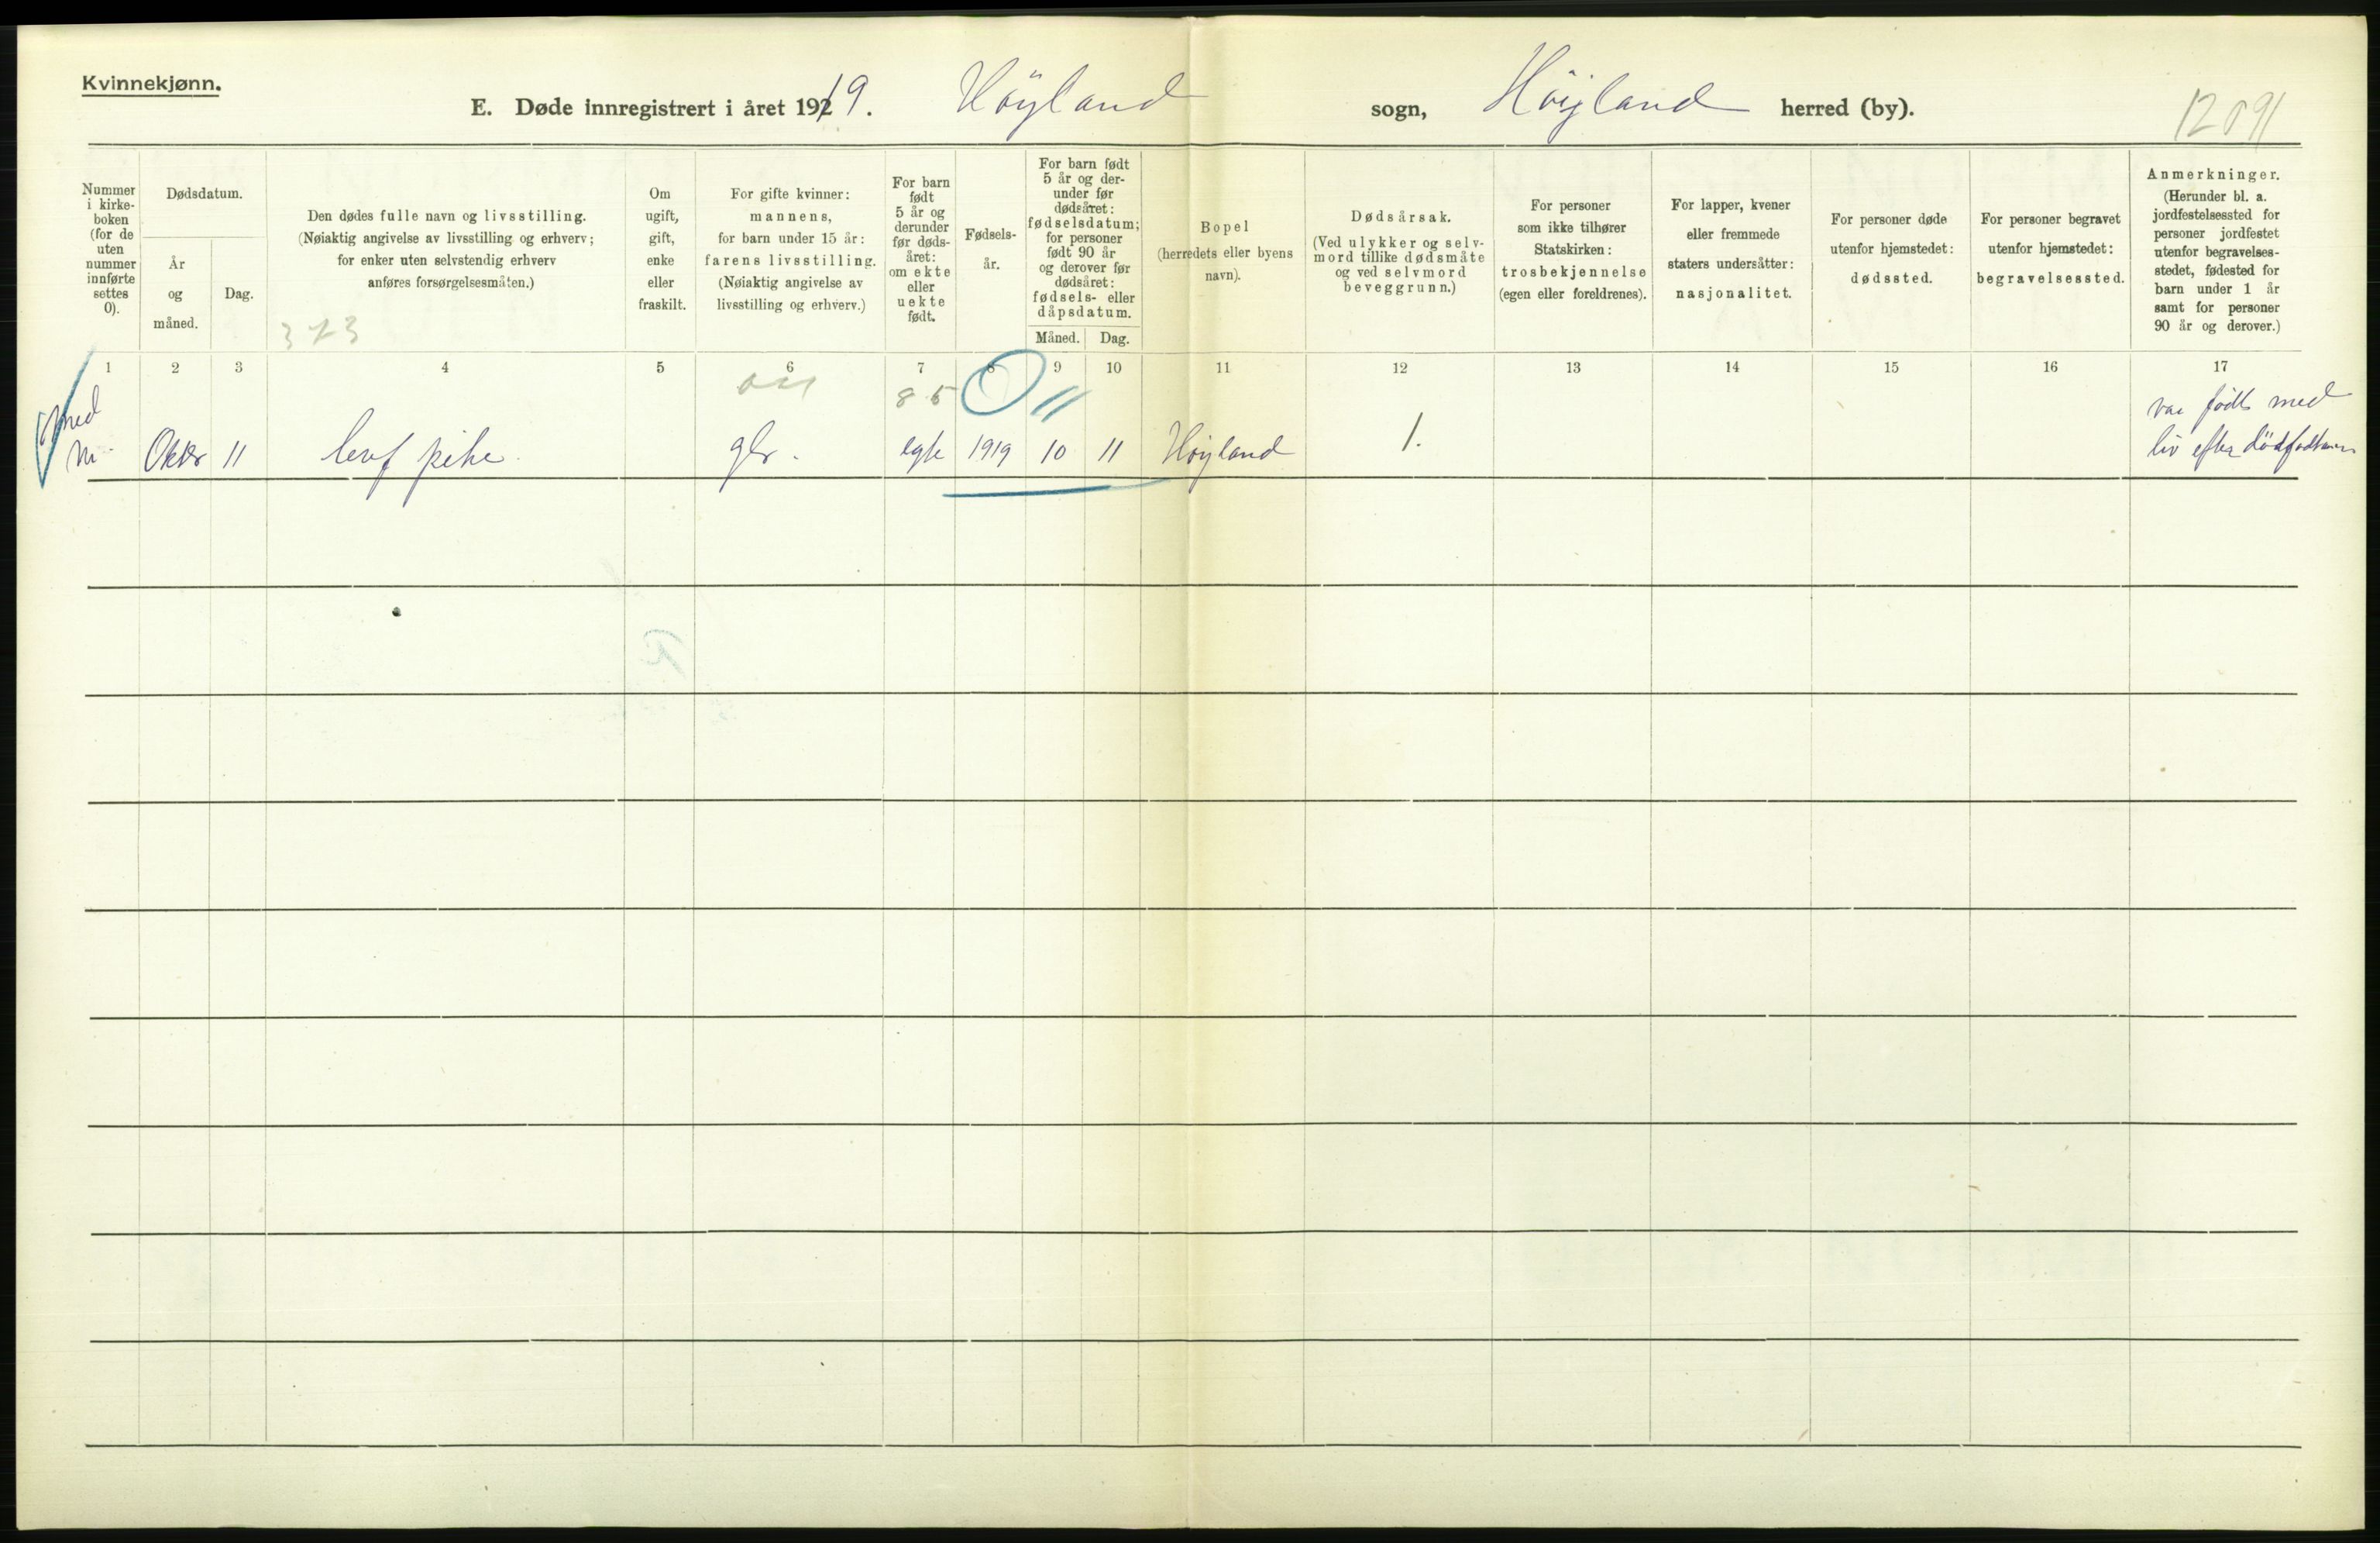 Kvinnekjønn.
E. Døde innregistrert i året 1919. Höyland sogn, Höyland herred (by).
1209
Nummer
i kirke-
boken
(for de
uten
nummer
innførte
settes
0).
Dødsdatum.
År
og
måned.
Dag.
Den dødes fulle navn og livsstilling.
(Nøiaktig angivelse av livsstilling og erhverv;
for enker uten selvstendig erhverv
anføres forsørgelsesmåten.)
373
Om
ugift,
gift,
enke
eller
fraskilt.
For gifte kvinner:
mannens,
for barn under 15 år:
farens livsstilling.
(Nøiaktig angivelse av
livsstilling og erhverv.)
For barn
født
5 år og
derunder
før døds-
året:
om ekte
eller
uekte
født.
Fødsels-
år.
For barn født
5 år og der-
under før
dødsåret:
fødselsdatum;
for personer
født 90 år
og derover før
dødsåret:
fødsels- eller
dåpsdatum.
Måned. Dag.
Bopel
(herredets eller byens
navn).
Dødsårsak.
(Ved ulykker og selv-
mord tillike dødsmåte
og ved selvmord
beveggrunn.)
For personer
som ikke tilhører
Statskirken:
trosbekjennelse
(egen eller foreldrenes).
For lapper, kvener
eller fremmede
staters undersåtter:
nasjonalitet.
For personer døde
utenfor hjemstedet:
dødssted.
For personer begravet
utenfor hjemstedet:
begravelsessted.
Anmerkninger.
(Herunder bl. a.
jordfestelsessted for
personer jordfestet
utenfor begravelses-
stedet, fødested for
barn under 1 år
samt for personer
90 år og derover.)
1 2 3 4 5 6 7 8 9 10 11 12 13 14 15 16 17
85 0 11
Oktbr 11 levf pike. gbr. egte 1919 10 11 Höyland 1.
var født med
liv efter